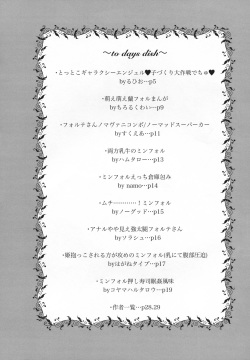 ～to days dish～
・とっとこギャラクシーエンジェル♥子づくり大作戦でちゅ♥
byるひお…p5
・萌え萌え蘭フォルまんが
byちろるくわい…p9
・フォルテさんノマヴァニコンボ/ノーマッドスーパーカー
byすくえあ…p11
・両方乳牛のミンフォル
byハムタロー…p13
・ミンフォルえっち倉庫包み
by namo…p14
・ムチ………！ミンフォル
byノーグッド…p15
・アナルやや見え強え蘭フォルテさん
byソラシュ…p16
・姫抱っこされる方が攻めのミンフォル(乳にて腹部圧迫)
byはがねタイプ…p17
・ミンフォル押し寿司眠姦風味
byコヤマハルタロウ…p19
・作者一覧…p28.29